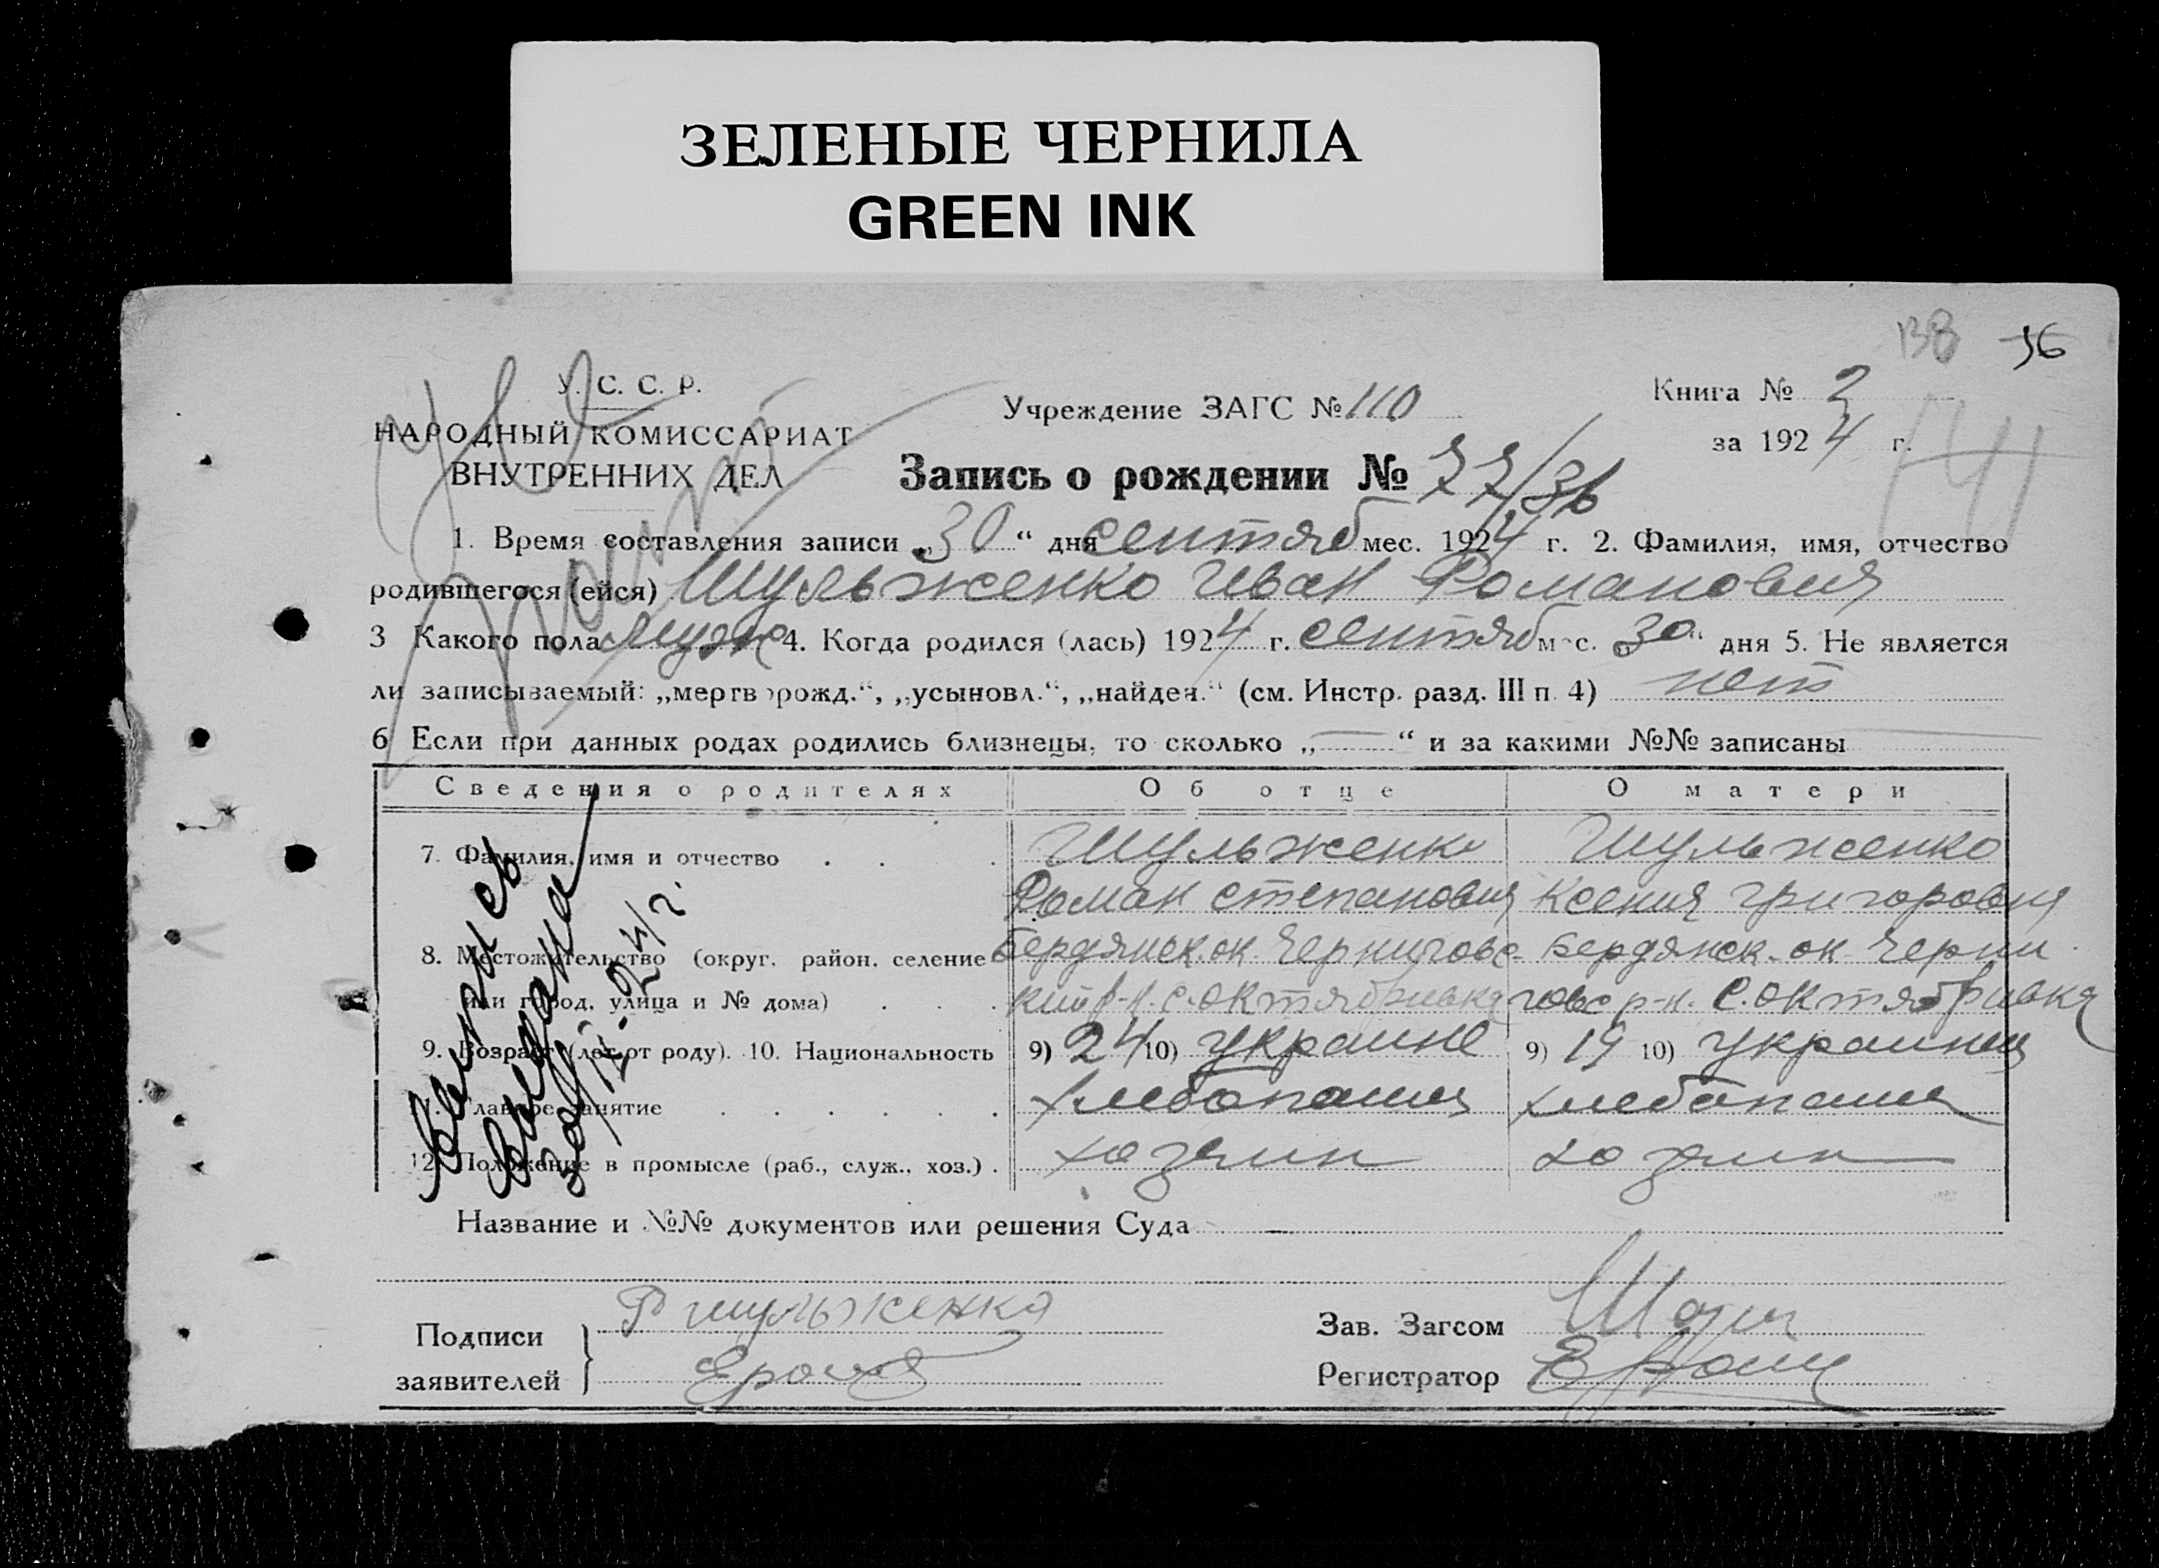 ЗЕЛЕНЫЕ ЧЕРНИЛА
GREEN INK
138 36
У. С. С. Р.
НАРОДНЫЙ КОМИССАРИАТ
ВНУТРЕННИХ ДЕЛ
Учреждение ЗАГС № 110
Книга № 2
за 1924 г.
Запись о рождении № 77/36
1. Время составления записи „30“ дня сентяб мес. 1924 г. 2. Фамилия, имя, отчество
родившегося (ейся) Шульженко Иван Романович
3 Какого пола муж 4. Когда родился (лась) 1924 г. сентяб мес. „30“ дня 5. Не является
ли записываемый: „мертворожд.“, „усыновл.“, „найден.“ (см. Инстр. разд. III п. 4) нет
6 Если при данных родах родились близнецы, то сколько „—“ и за какими №№ записаны
Сведения о родителях Об отце О матери
7. Фамилия, имя и отчество Шульженко Шульженко
Роман Степанович Ксения Григоровна
8. Местожительство (округ, район, селение Бердянск. ок. Черниговс- Бердянск. ок. Черни
или город, улица и № дома) кий р-н. с. Октябривка говс р-н. с. Октябривка
9. Возраст (лет от роду). 10. Национальность 9) 24 10) украине 9) 19 10) украинец
11. Главное занятие хлебопашец хлебопашец
12. Положение в промысле (раб., служ., хоз.) хозяин хозяин
Выпись
выдана
Название и №№ документов или решения Суда —
Подписи заявителей
Р Шульженко
Зав. Загсом
Регистратор